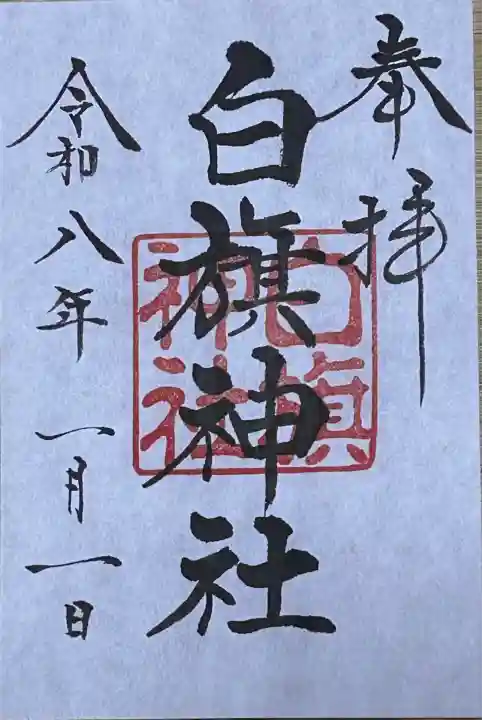 奉拝
白旗神社
白旗神社
令和八年 一月一日